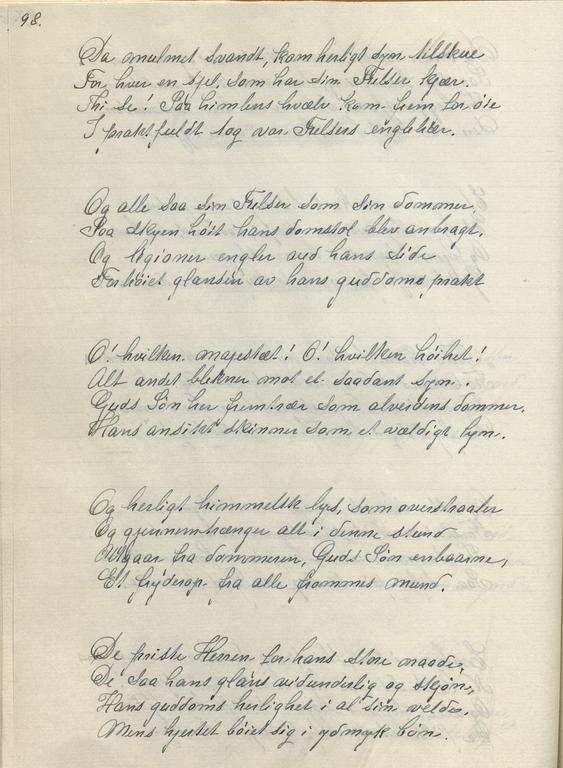 98.
Da mulmet svandt, kom herligt syn tilskue
For hver en sjel, som har sin Frelser kjær.
Thi se! Paa himlens hvælv kom frem for øie
I praktfuldt tog vor Frelsers englehær.
Og alle saa sin Frelser som sin dommer,
Paa skyen höit hans domstol blev anbragt,
Og legioner engler ved hans side
Forhöiet glansen av hans guddoms prakt
O! hvilken majestæt! O! hvilken höihet!
Alt andet blekner mot et saadant syn.
Guds Sön her fremtrær som alverdens dommer,
Hans ansikt skinner som et vældigt lyn.
Og herligt himmelsk lys, som overstraaler
Og gjennemtrænger alt i denne stund
Utgaar fra dommeren, Guds Sön enbaarne,
Et frydesop fra alle frommes mund.
De priste Herren for hans store naade,
De saa hans glans vidunderlig og skjön,
Hans guddoms herlighet i al sin vælde,
Mens hjertet böiet sig i ydmyk bön.